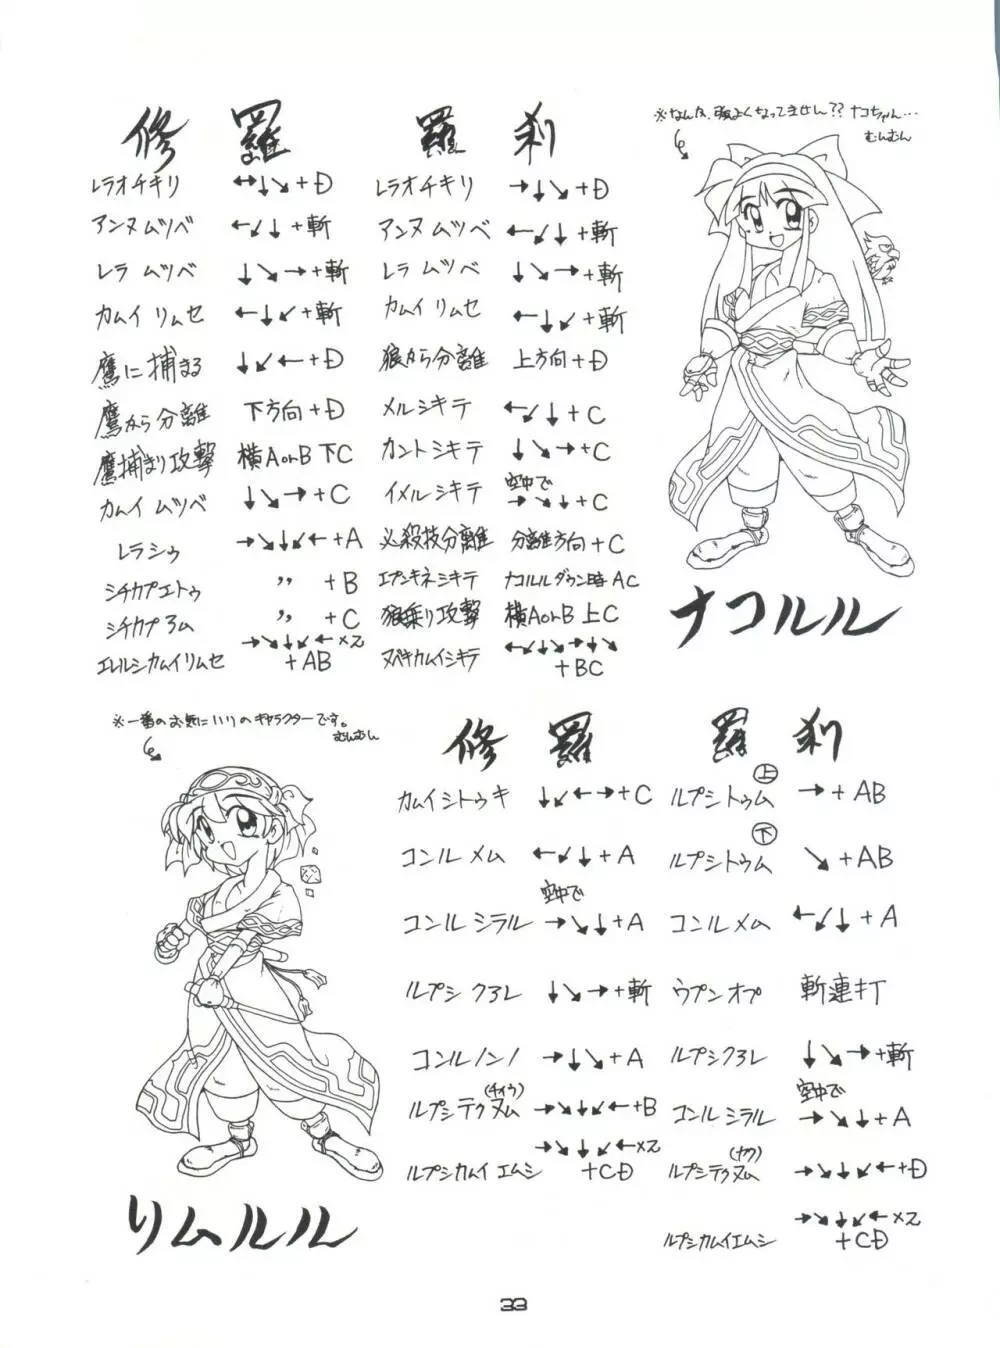 ※なんか、頭よくなってません?? ナコちゃん…
むんむん
修 羅 羅 刹
レラオチキリ ↔↓↘+Ð レラオチキリ →↓↘+Ð
アンヌムツベ ←↙↓+斬 アンヌムツベ ←↙↓+斬
レラ ムツベ ↓↘→+斬 レラ ムツベ ↓↘→+斬
カムイ リムセ ←↓↙+斬 カムイ リムセ ←↓↙+斬
鷹に捕まる ↓↙←+Ð 狼から分離 上方向+Ð
鷹から分離 下方向+Ð メルシキテ ←↙↓+C
鷹捕まり攻撃 横AorB 下C カントシキテ ↓↘→+C
カムイ ムツベ ↓↘→+C イメルシキテ 空中で →↘↓+C
レラシゥ →↘↓↙←+A 必殺技分離 分離方向+C
シチカプエトゥ 〃 +B エプンキネシキテ ナコルルダウン時AC
シチカプアム 〃 +C 狼乗り攻撃 横AorB 上C
エレルシカムイリムセ →↘↓↙←×2 +AB ヌペキカムイシキテ ←↙↓↘→↓↘ +BC
ナコルル
※一番のお気にいりのキャラクターです。
むんむん
修 羅 羅 刹
カムイシトゥキ ↓↙←→+C ルプシトゥム 上 →+AB
コンル メム ←↙↓+A ルプシトゥム 下 ↘+AB
コンル シラル 空中で →↘↓+A コンル メム ←↙↓+A
ルプシ クヨレ ↓↘→+斬 ウプンオプ 斬連打
コンルノンノ →↓↘+A ルプシクヨレ ↓↘→+斬
ルプシテクヌム (チイウ) →↘↓↙←+B コンル シラル 空中で →↘↓+A
ルプシカムイエムシ →↘↓↙←×2 +CÐ ルプシテクヌム (ナウ) →↘↓↙←+Ð
ルプシカムイエムシ →↘↓↙←×2 +CÐ
リムルル
33